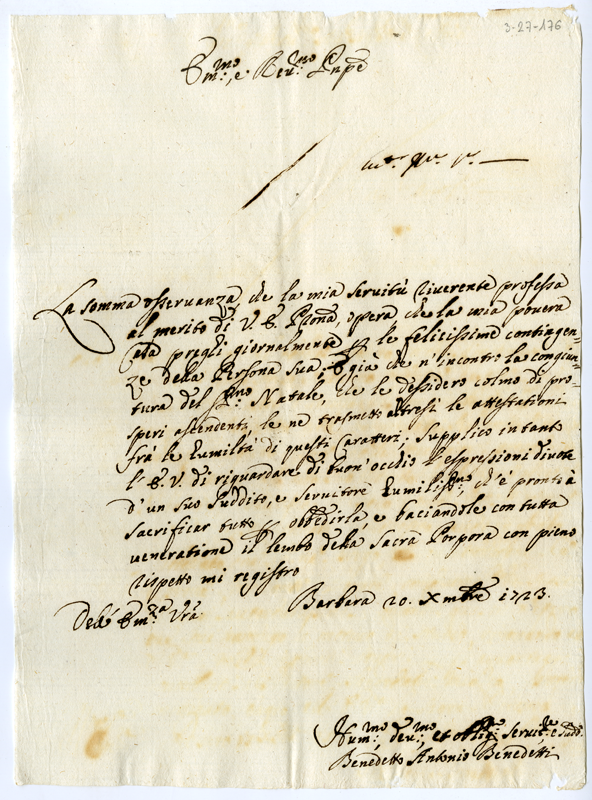 3-27-176
Em:mo, e Reu:mo Pnpe
La somma osseruanza, che la mia seruitù riuerente professa
al merito di V. E. Prona, opera che la mia pouera
Casa preghi giornalmente p le felicissime contingen-
ze della Persona sua; E già che n'incontro la congiun-
tura del S:mo Natale, che le dessidero colmo di pro-
speri ascendenti, le ne trasmetto altresì le attestationi
frà le humiltà di questi Caratteri. Supplico in tanto
l'E. V. di riguardare di buon'occhio l'espressioni diuote
d'un suo suddito, e seruitore humiliss:mo, ch'è pronto à
sacrificar tutto p obbedirla, e baciandole con tutta
ueneratione il lembo della Sacra Porpora con pieno
rispetto mi registro
Dell' Em:za Vrã
Barbara 20. Xmbre 1723.
Hum:mo, deu:mo, et obblig:mo seruit:re e Sudd:
Benedetto Antonio Benedetti